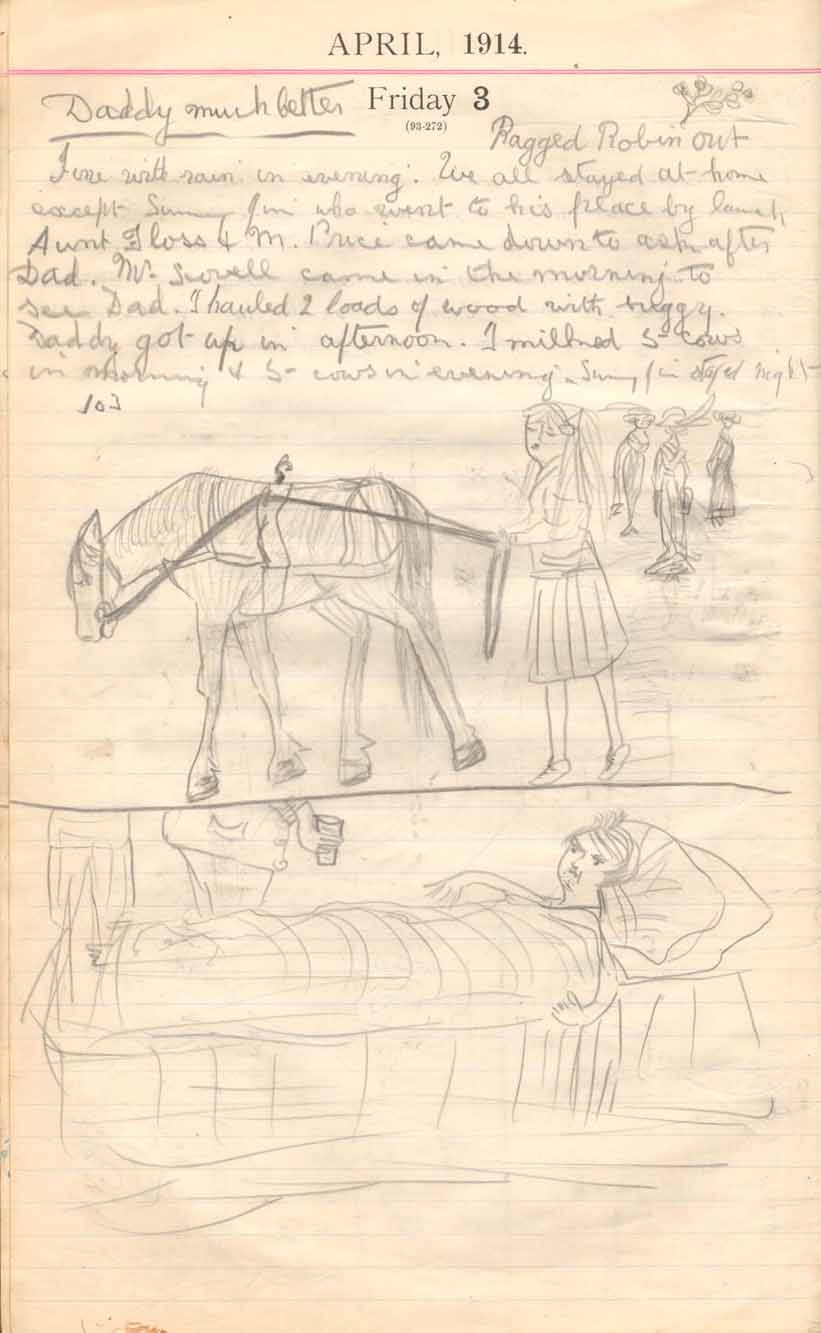 APRIL, 1914.
Daddy much better Friday 3
(93-272)
Ragged Robin out
Fine with rain in evening. We all stayed at home
except Sunny Jim who went to his place by launch,
Aunt Floss & M. Price came down to ask after
Dad. Mr. came in the morning to
see Dad. I hauled 2 loads of wood with buggy.
Daddy got up in afternoon. I milked 5 cows
in morning & 5 cows in evening. Sunny Jim stayed night
103